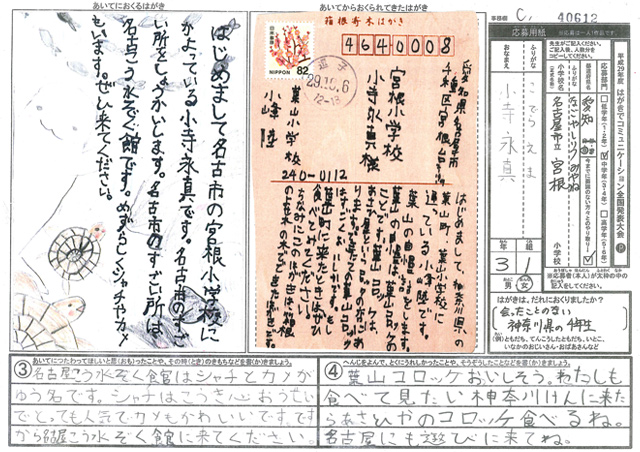 あいてにおくるはがき
はじめまして名古市の宮根小学校に
かよっている小寺永真です。名古市のすご
い所をしょうかいします。名古市のすごい所は、
名古こう水ぞく館です。めずらしくシャチやカメ
もいます。ぜひ来てください。
あいてからおくられてきたはがき
箱根寄木はがき
4640008
日本郵便
82
NIPPON
逗子
29.10.6
12-18
愛知県名古屋市
千種区宮根台
宮根小学校
小寺永真様
葉山小学校
小峰 陸
240-0112
はじめまして、神奈川県の
葉山町、葉山小学校に
通っている小峰陸です。
葉山の自慢は
葉山コロッケ
ことです。葉山コロッケは、
食べてみてください。
葉山町に来たときはぜひ
ちなみにこのはがきは箱根
のよせ木の木でできたはがきです
事務欄
C
40612
応募用紙
平成29年度 はがきでコミュニケーション全国発表大会
おなまえ
ふりがな
こでらえま
小寺永真
小学校名
ふりがな
なごやしりつみやね
名古屋市立 宮根
小学校
都道府県名
愛知
低学年(1・2年)
中学年(3・4年)
高学年(5・6年)
年
3
組
1
男
女
はがきは、だれにおくりましたか?
会ったことのない
神奈川県の4年生
(例)ともだち、てんこうしたともだち、いとこ、
いなかのおじいさん・おばあさんなど
あいてにつたわってほしいと思(おも)ったことや、その時(とき)のきもちなどを書(か)きましょう。
③名古屋こう水ぞく館はシャチとカメが
ゆう名です。シャチはこうき心おうせい
でとっても人気でカメもかわいいです。です
から名古屋こう水ぞく館に来てください。
へんじをよんで、とくにうれしかったことや、そうぞうしたことなどを書(か)きましょう。
④葉山コロッケおいしそう。わたしも
食べて見たい神奈川けんに来た
らあさひやのコロッケ食べるね。
名古屋にも遊びに来てね。